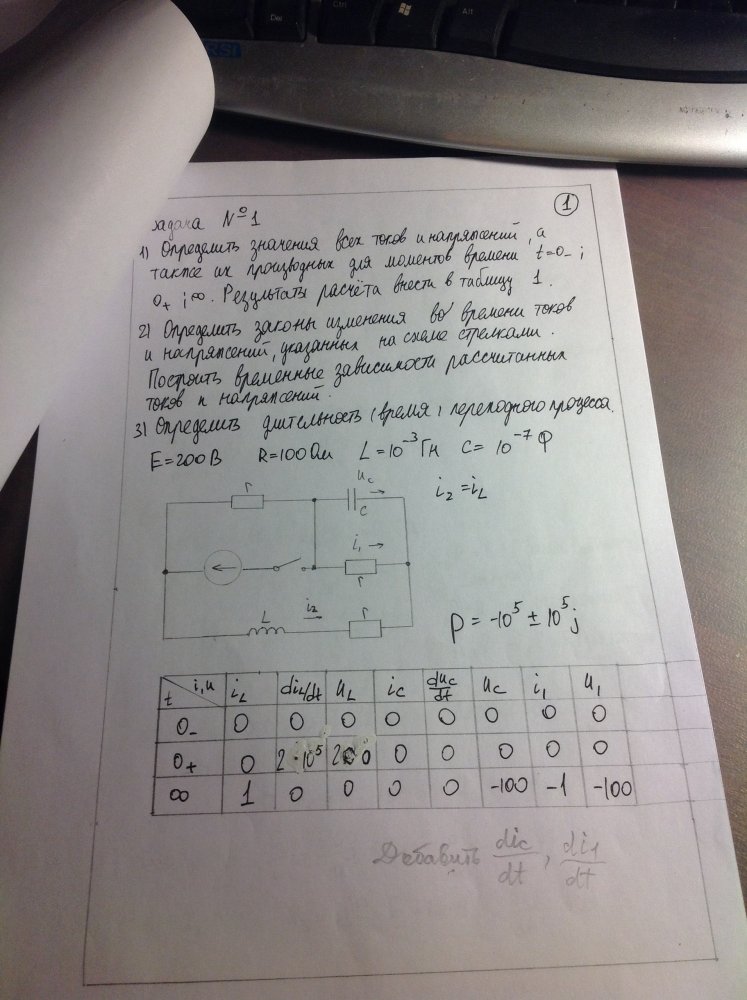 1
задача №1
1) Определить значения всех токов и напряжений, а
также их производных для моментов времени t=0₋ ;
0₊ ; ∞. Результаты расчёта внести в таблицу 1.
2) Определить законы изменения во времени токов
и напряжений, указанных на схеме стрелками.
Построить временные зависимости рассчитанных
токов и напряжений.
3) Определить длительность (время) переходного процесса.
E=200В R=100Ом L=10⁻³Гн C=10⁻⁷Ф
r
uc
C
i₂=iL
i₁
r
L
i₂
r
p = -10⁵ ± 10⁵j
t i,u iL diL/dt uL ic duc/dt uc i₁ u₁
0₋ 0 0 0 0 0 0 0 0
0₊ 0 2·10⁵ 200 0 0 0 0 0
∞ 1 0 0 0 0 -100 -1 -100
Добавить dic/dt, di₁/dt
Del
Ctrl
Alt